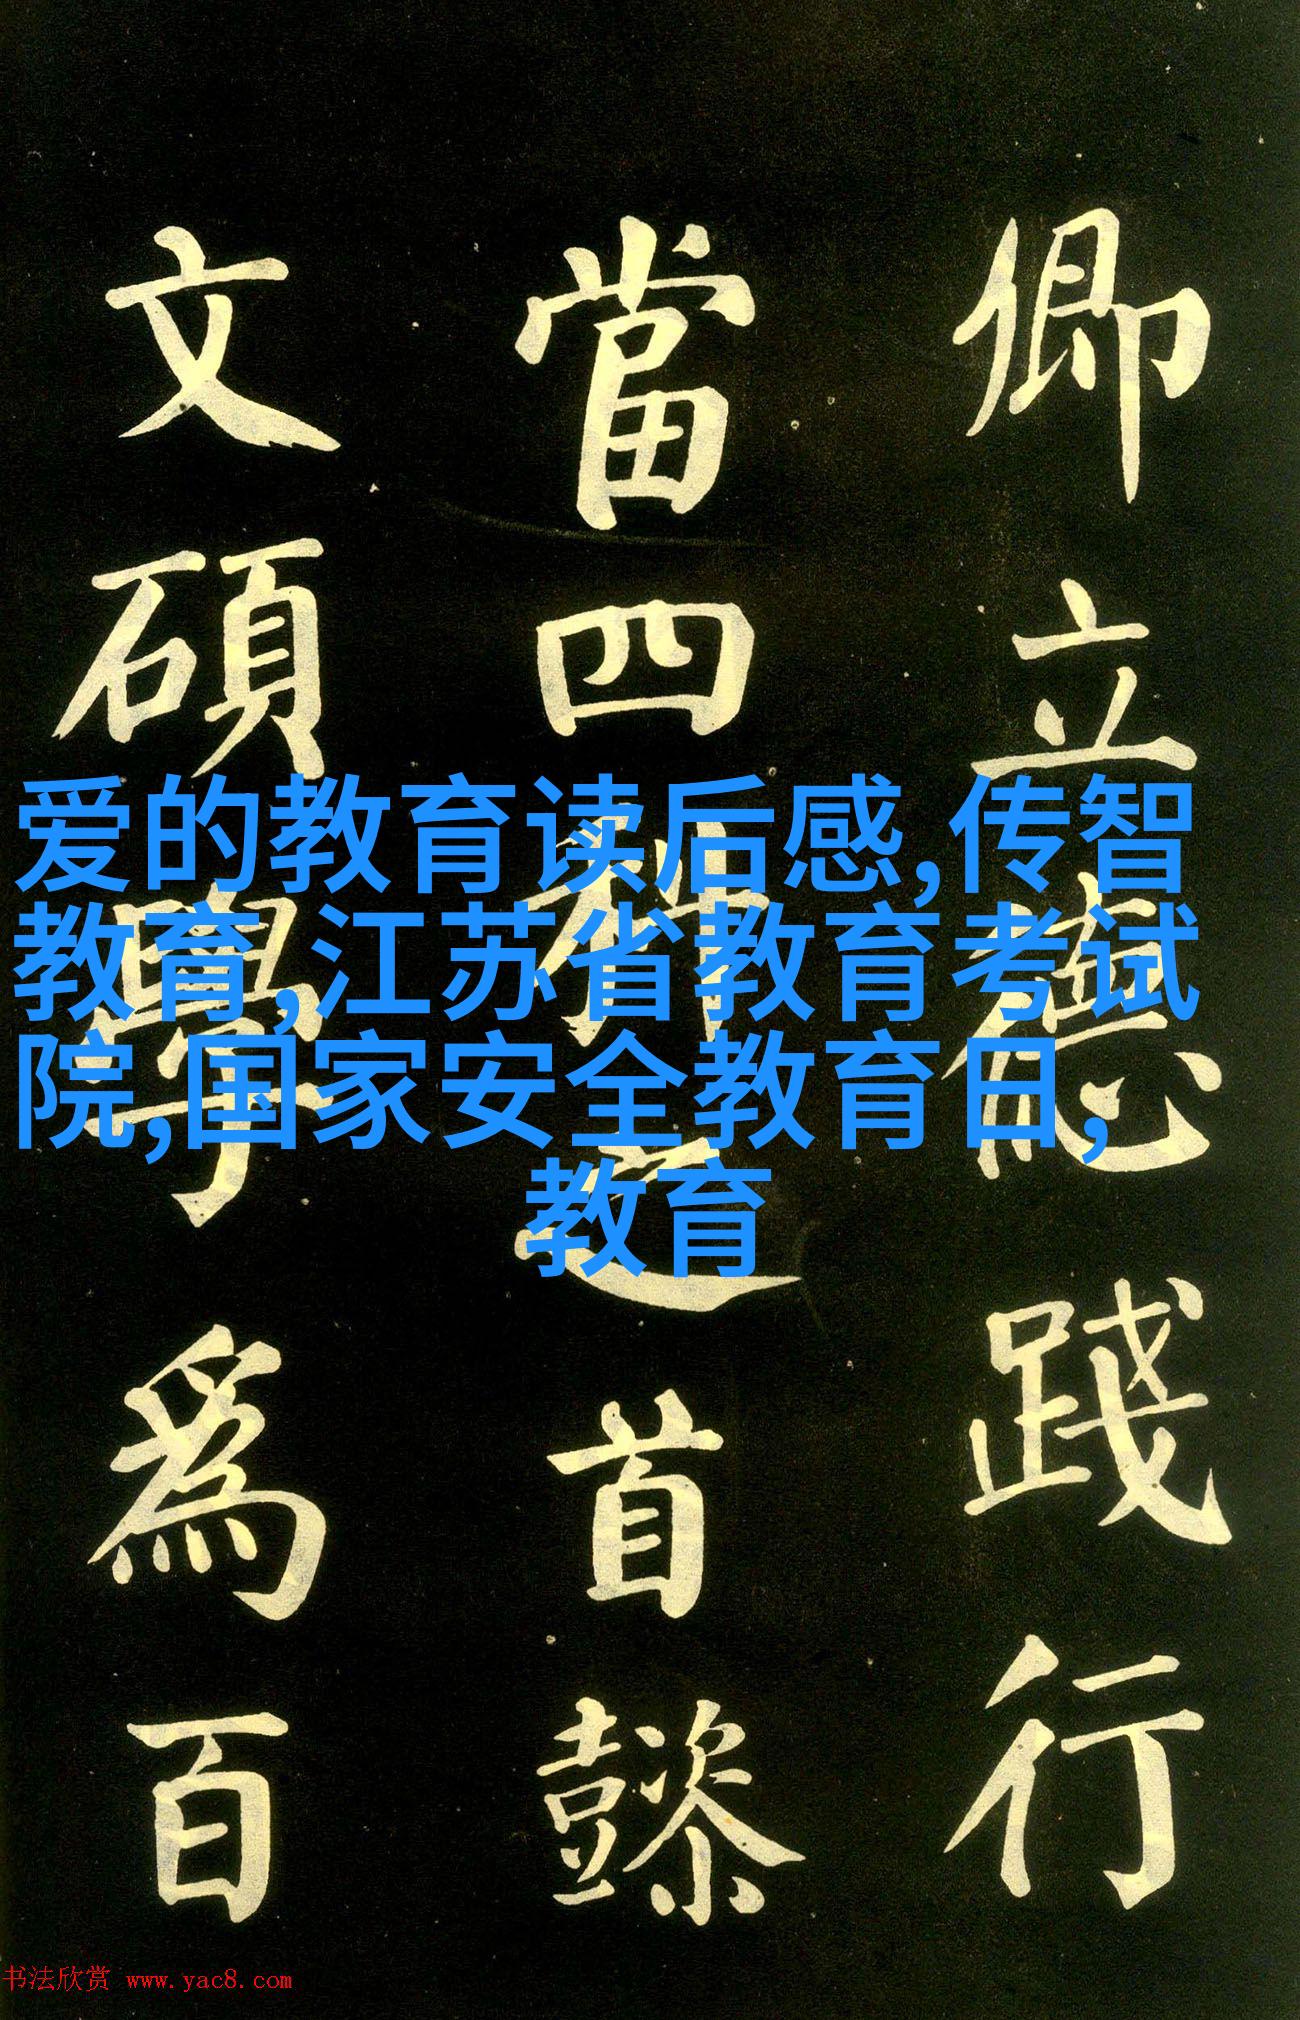 卿立德踐行
當四科之首懿
文碩學爲百
爱的教育读后感,传智
教育,江苏省教育考试
院,国家安全教育日,
教育
书法欣赏 www.yac8.com